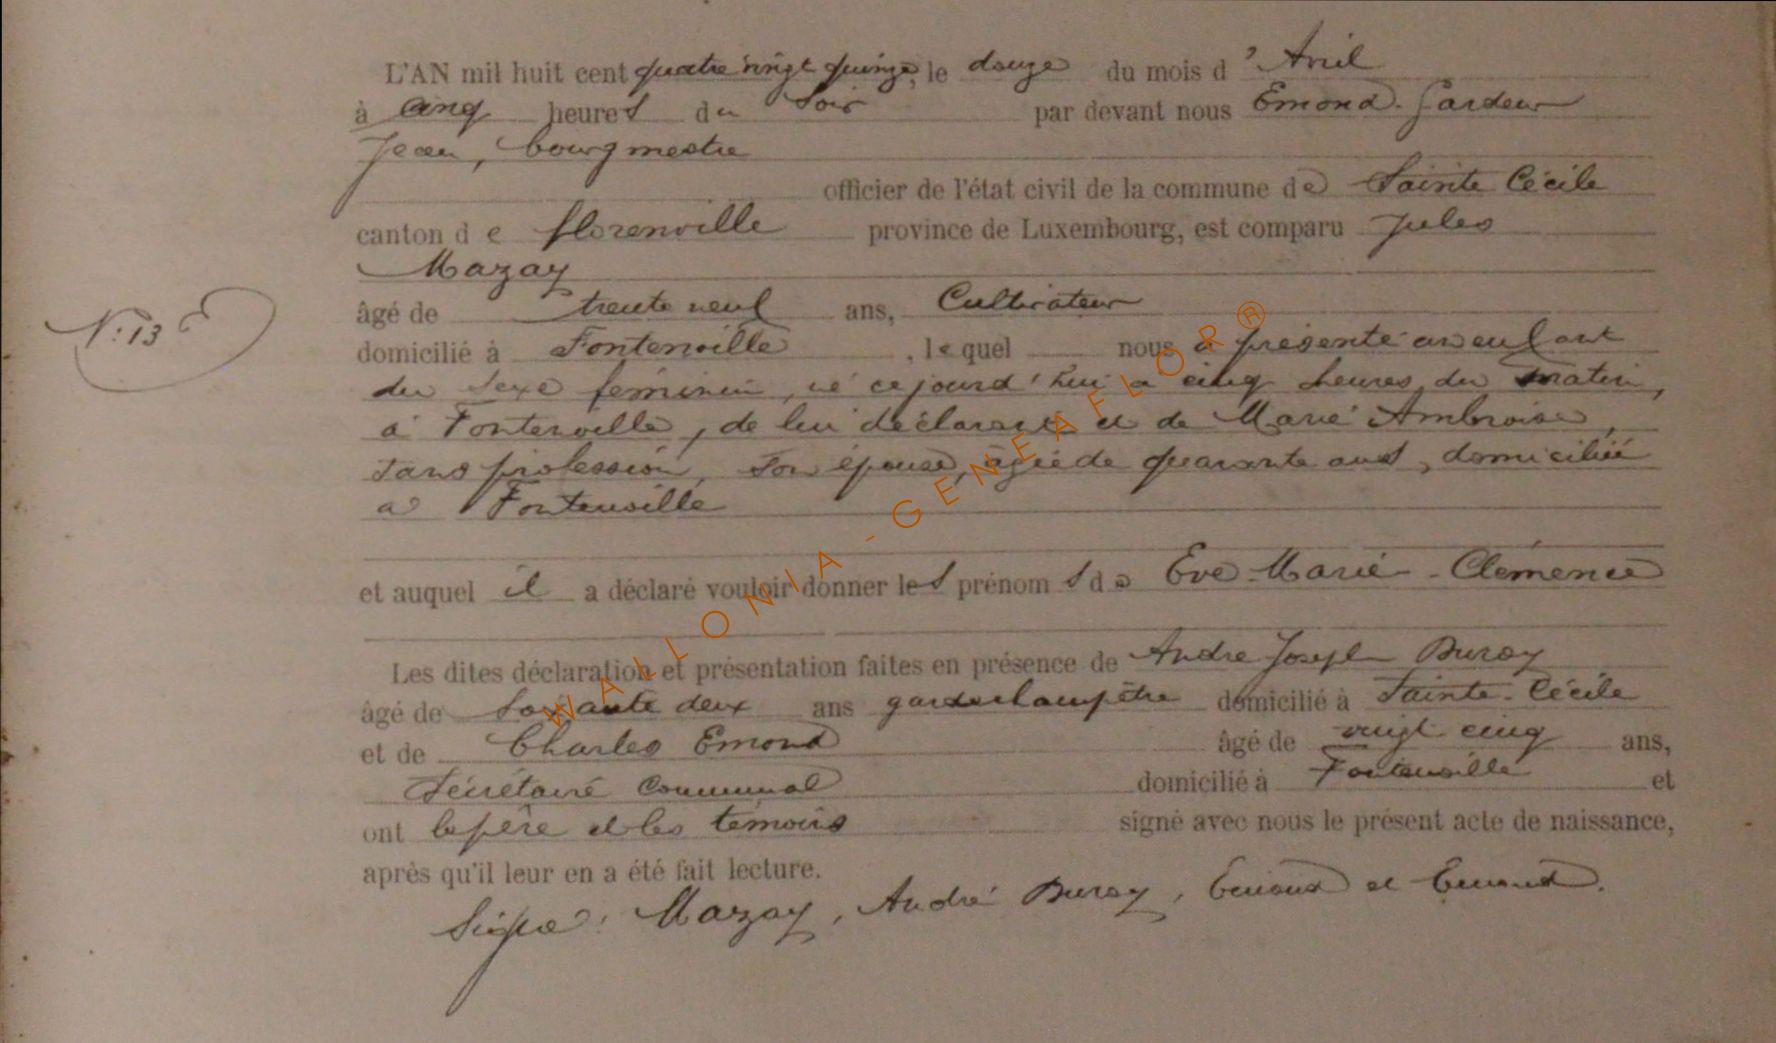 L'AN mil huit cent quatre vingt quinze, le douze du mois d'Avril
à cinq heures du soir par devant nous Emond-Gardeur
Jean, bourgmestre
officier de l'état civil de la commune de Sainte Cécile
canton de florenville province de Luxembourg, est comparu Jules
Mazay
N: 13
âgé de trente neuf ans, Cultivateur
domicilié à Fontenoille, lequel nous a présenté un enfant
du sexe féminin, né cejourd'hui à cinq heures du matin,
à Fontenoille, de lui déclarant et de Marie Ambroise,
sans profession, son épouse, âgée de quarante ans, domiciliée
à Fontenoille
et auquel il a déclaré vouloir donner les prénoms de Eve-Marie-Clémence
Les dites déclaration et présentation faites en présence de André Joseph Duroy
âgé de Soixante deux ans gardechampêtre domicilié à Sainte-Cécile
et de Charles Emond âgé de vingt cinq ans,
Sécrétaire Communal domicilié à Fontenoille et
ont le père et les témoins signé avec nous le présent acte de naissance,
après qu'il leur en a été fait lecture.
Signé: Mazay, André Duroy, Emond et Emond.
WALLONIA - GENEAFLOR®